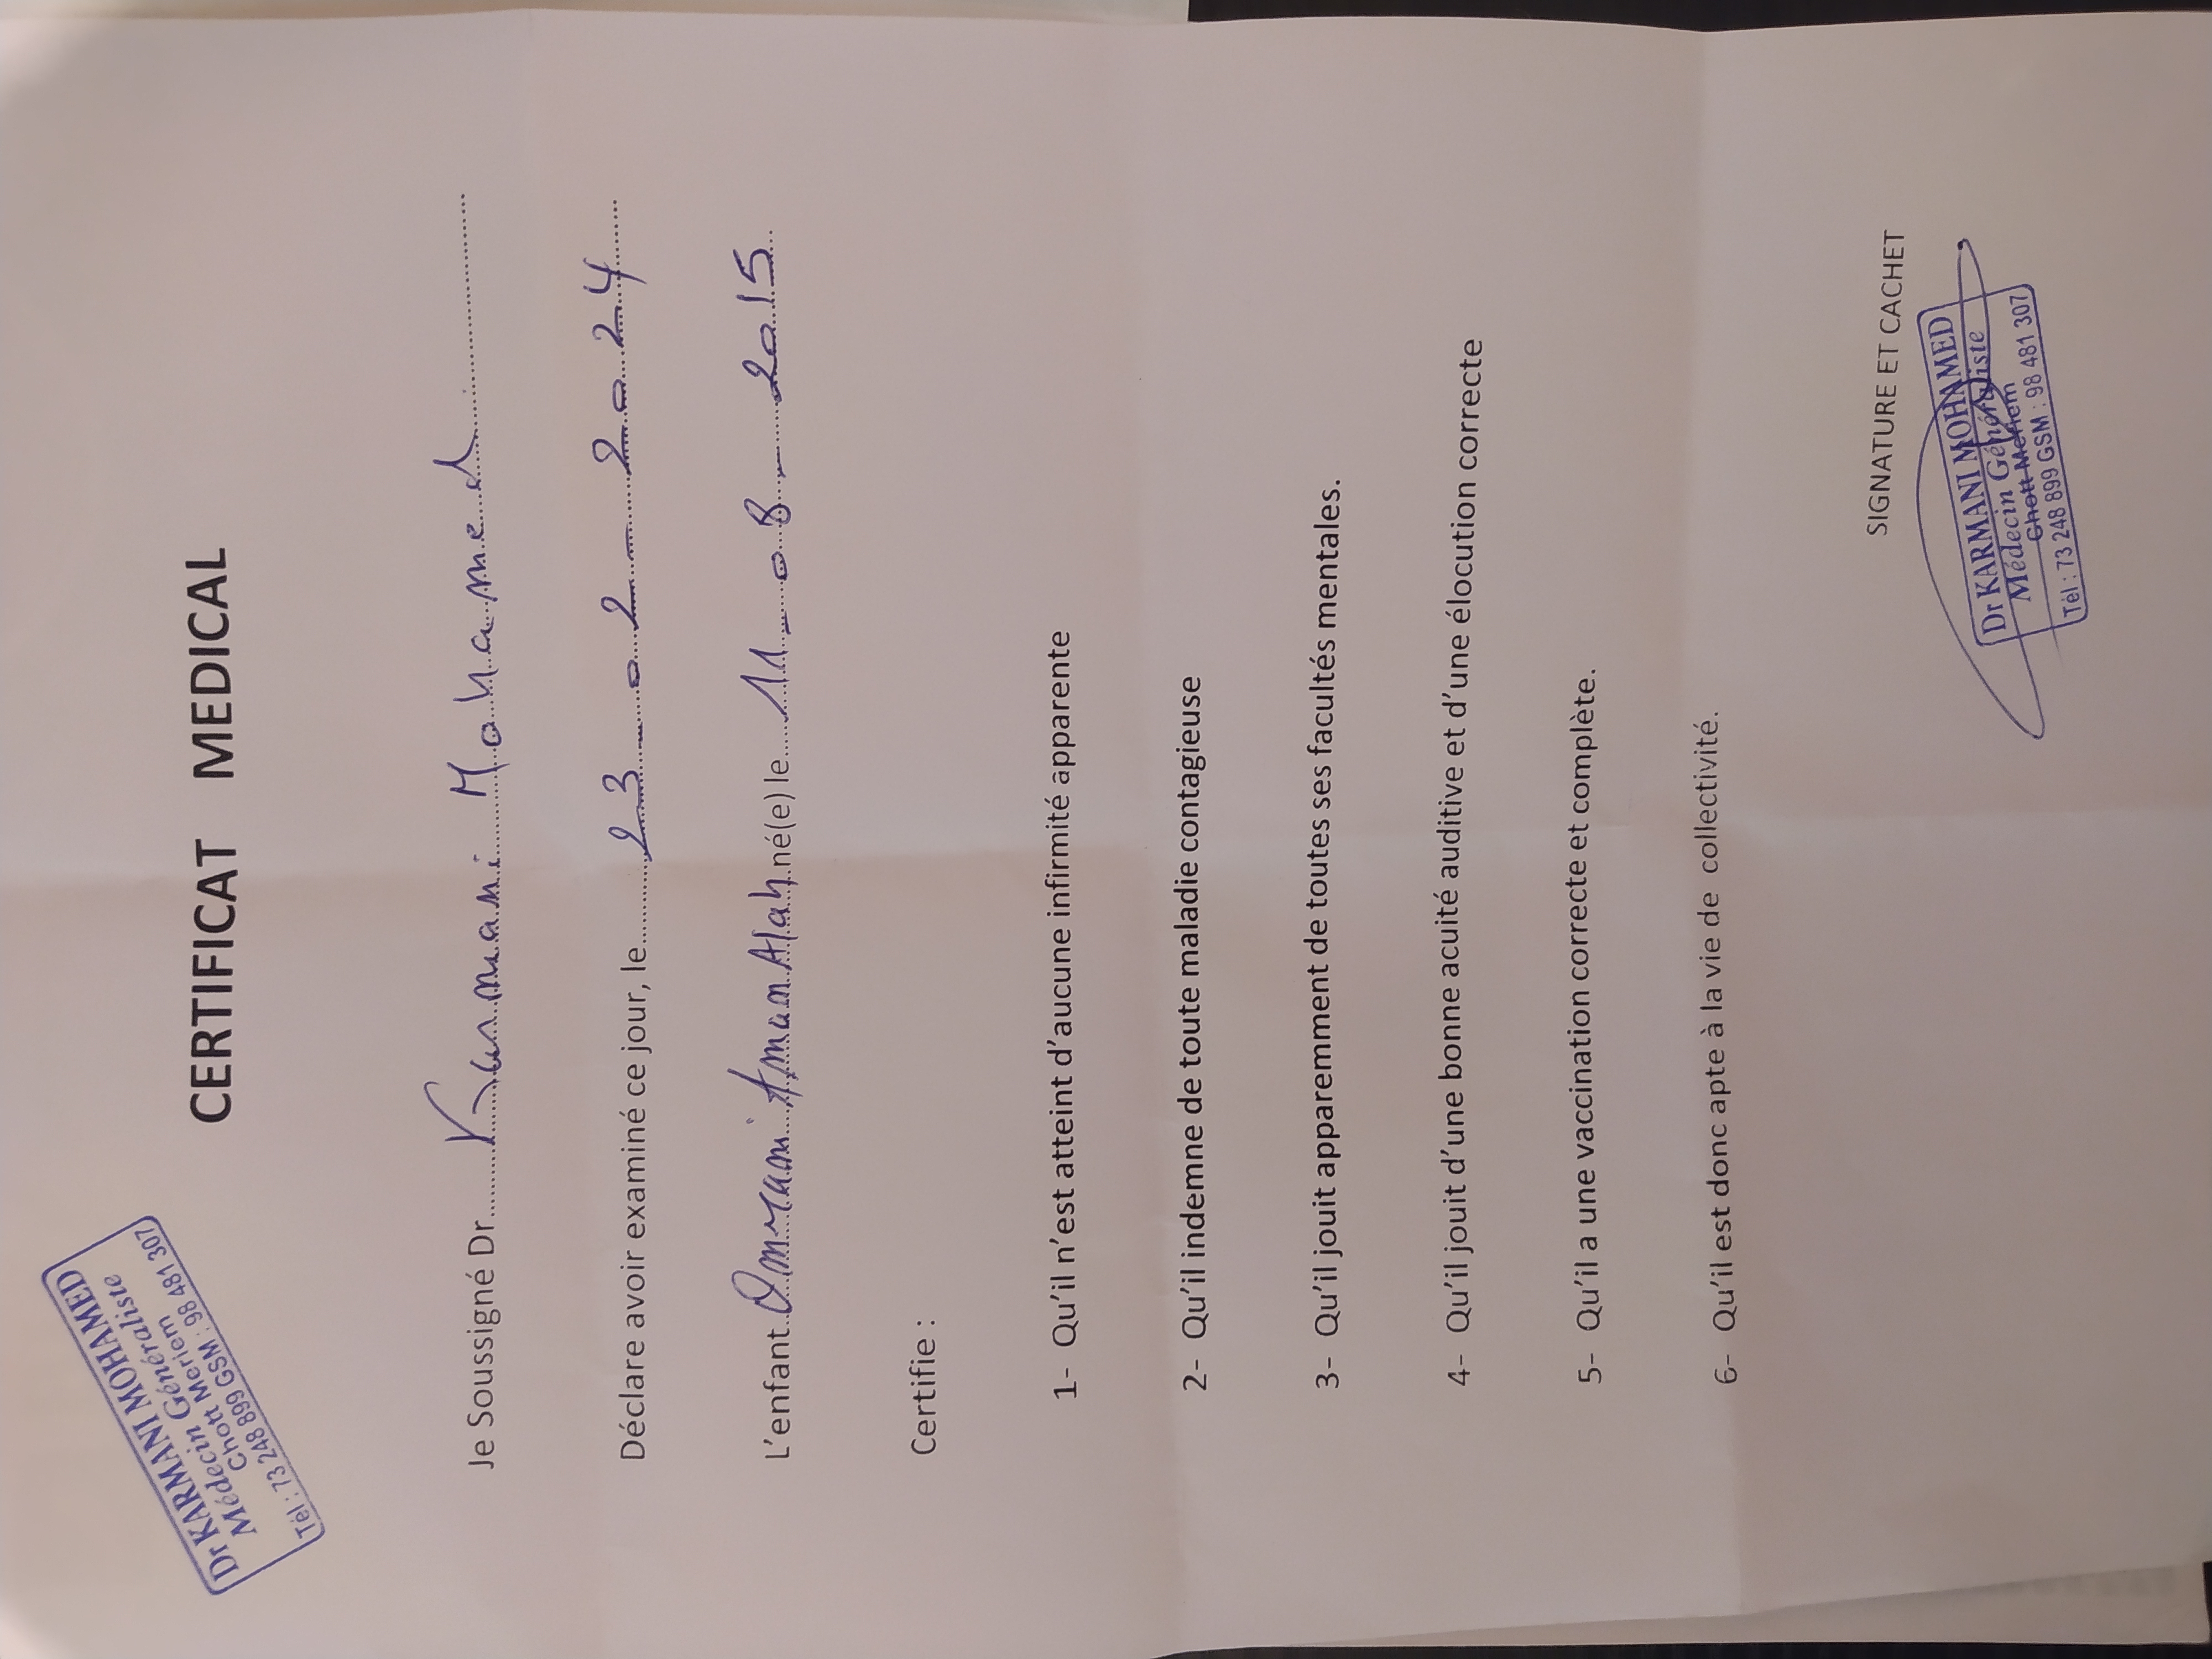 Dr KARMANI MOHAMED
Médecin Généraliste
Chott Meriem
Tél : 73 248 899 GSM : 98 481 307
CERTIFICAT MEDICAL
Je Soussigné Dr Karmani Mohamed
Déclare avoir examiné ce jour, le 23 - 02 - 2024
L'enfant Ommrani Aman Allah né(e) le 11 - 08 - 2015
Certifie :
1- Qu'il n'est atteint d'aucune infirmité apparente
2- Qu'il indemne de toute maladie contagieuse
3- Qu'il jouit apparemment de toutes ses facultés mentales.
4- Qu'il jouit d'une bonne acuité auditive et d'une élocution correcte
5- Qu'il a une vaccination correcte et complète.
6- Qu'il est donc apte à la vie de collectivité.
SIGNATURE ET CACHET
Dr KARMANI MOHAMED
Médecin Généraliste
Chott Meriem
Tél : 73 248 899 GSM : 98 481 307